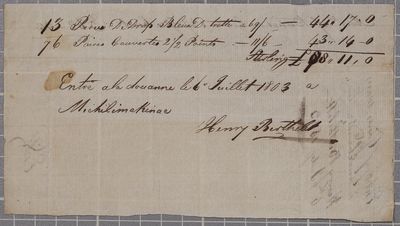 13 Pieces De Drap Bleu De traite a 69/ — 44-17-0
76 Paires Couvertes 2½ Points — 11/6 — 43-14-0
Sterling £ 88-11-0
Entré a la douanne le 6 Juillet 1803 a
Michilimakinac
Henry Berthelet